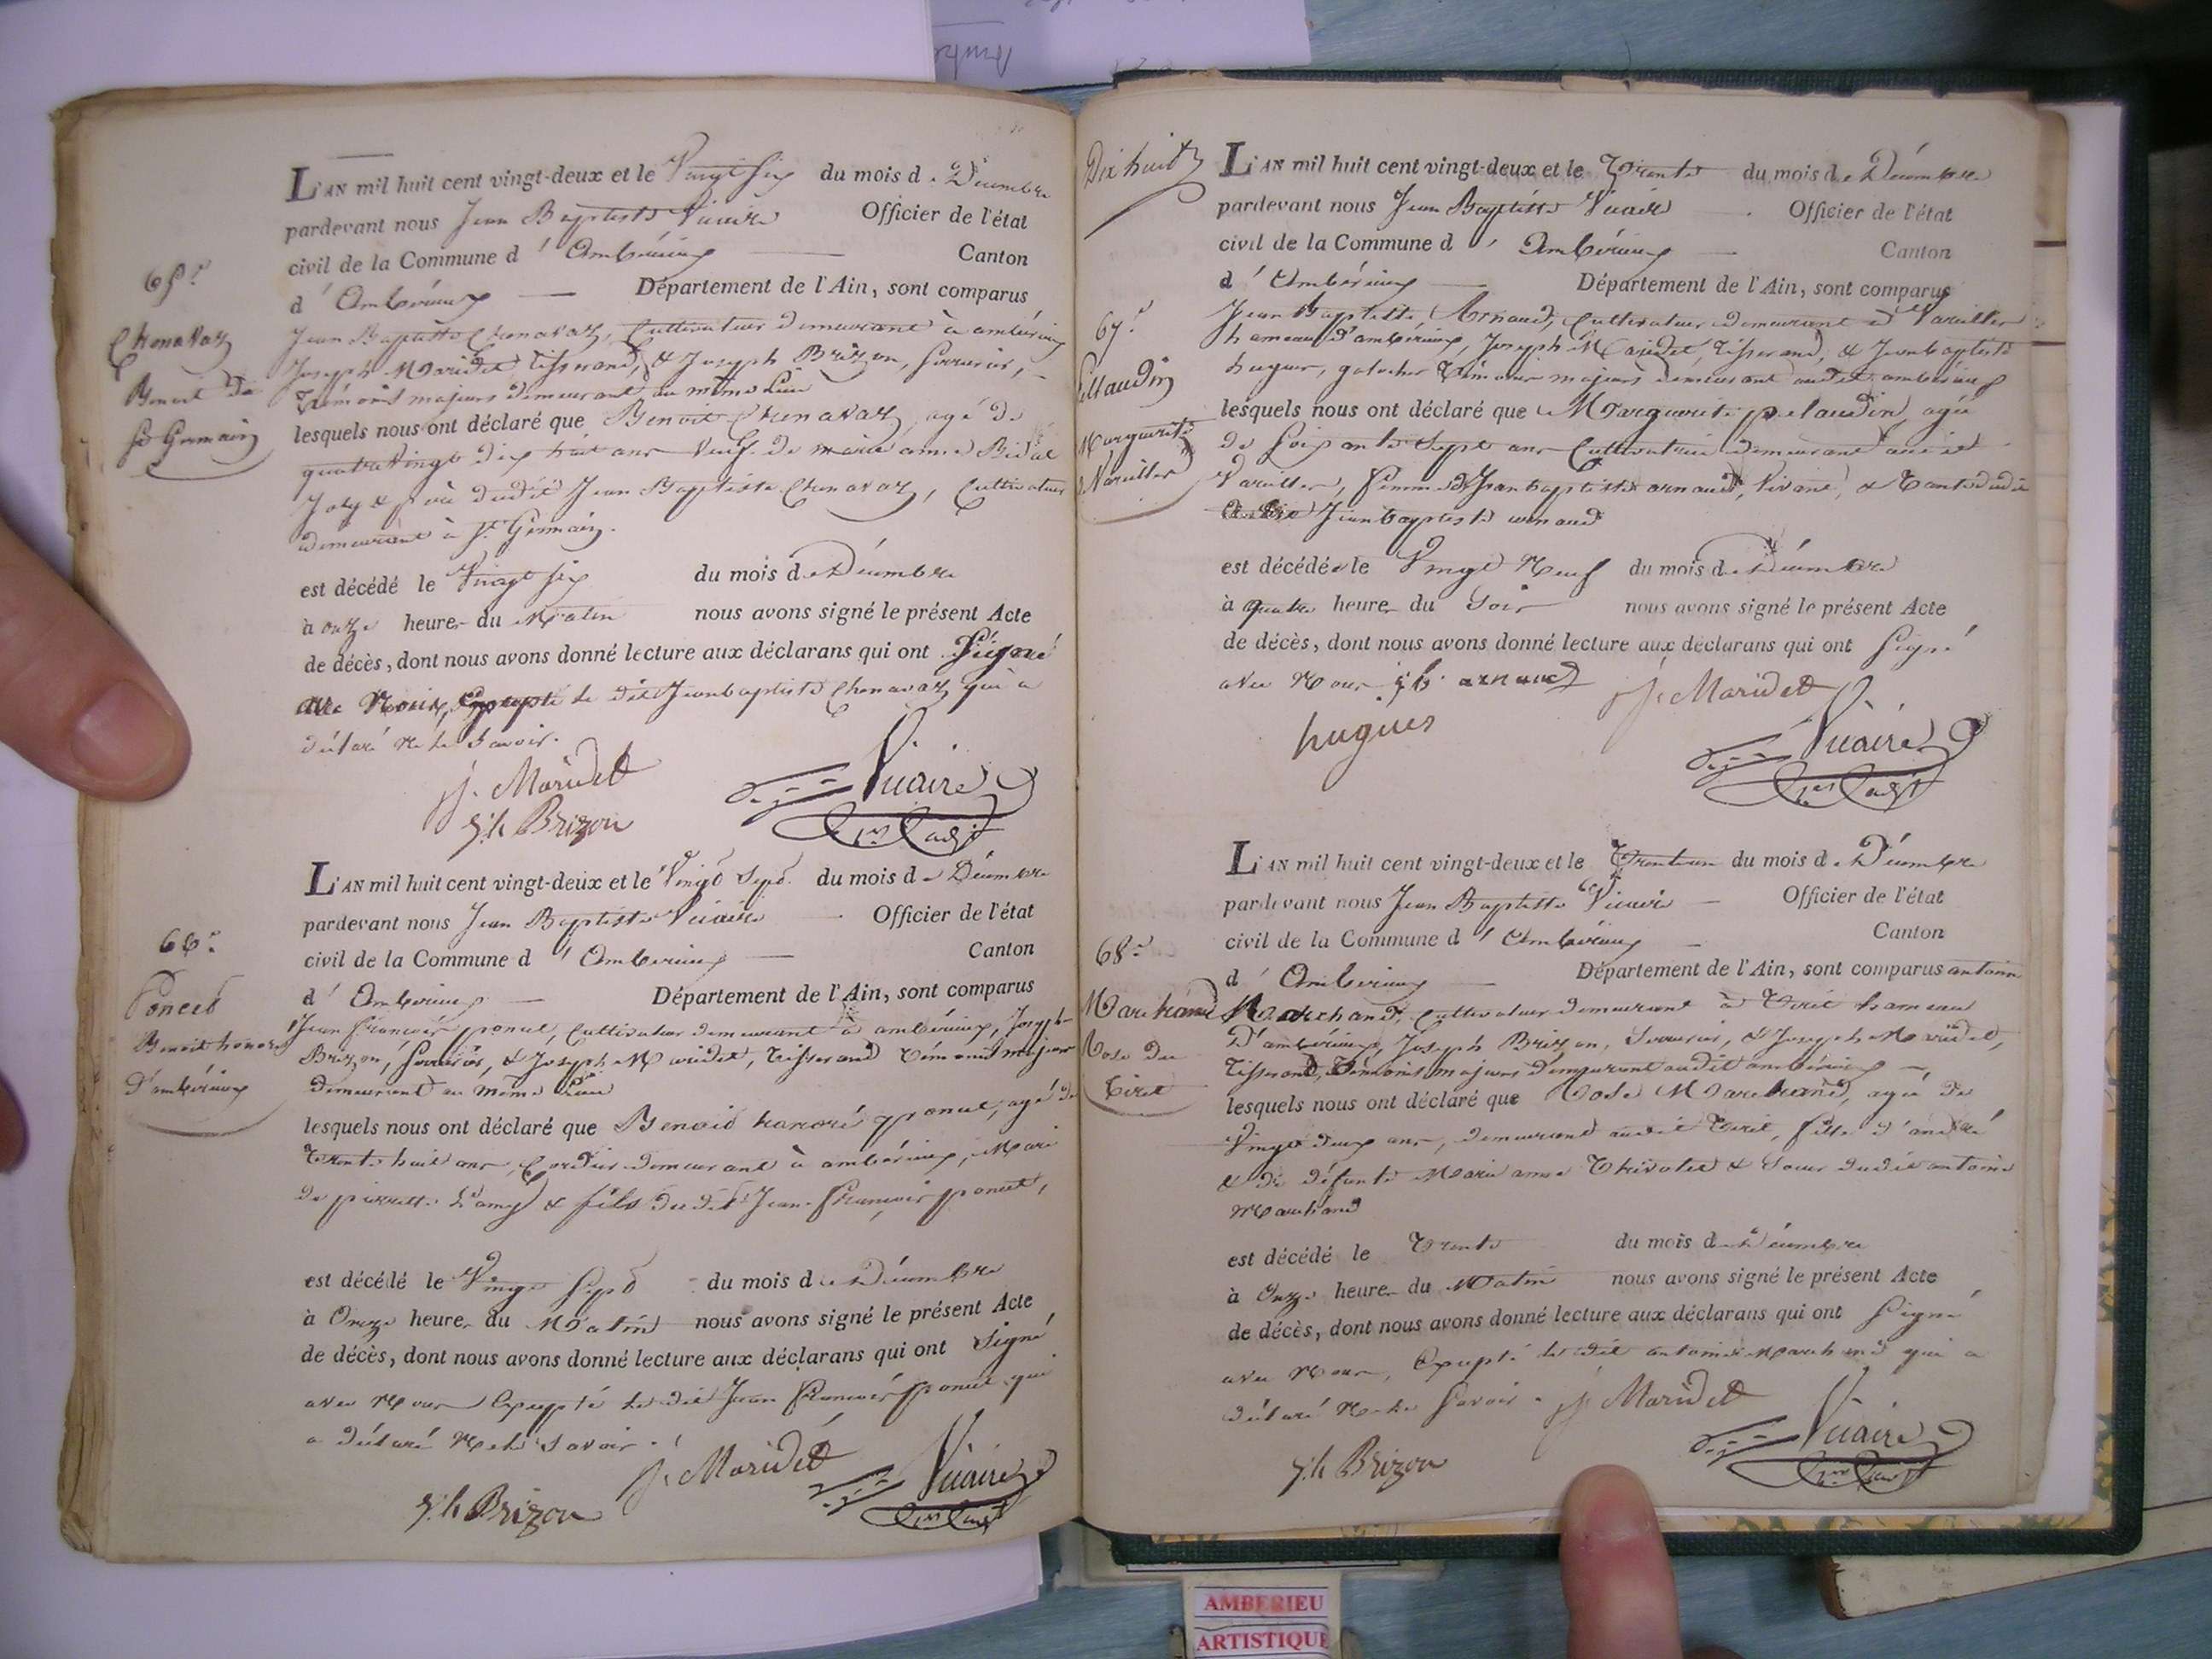 L'AN mil huit cent vingt-deux et le Vingt six du mois de Décembre
pardevant nous Jean Baptiste Vicaire Officier de l'état
civil de la Commune d' Ambérieux Canton
d' Ambérieux Département de l'Ain, sont comparus
65e
Chenavaz
Benoit de
St Germain
Jean Baptiste Chenavaz, Cultivateur demeurant à ambérieux
Joseph Maridet tisserand, & Joseph Brizon, serrurier,
Témoins majeurs demeurant au même Lieu
lesquels nous ont déclaré que Benoit Chenavaz, agé de
quatre Vingt dix huit ans Veuf de marie anne
Joly & père dudit Jean Baptiste Chenavaz, Cultivateur
demeurant à St Germain.
est décédé le Vingt six du mois de Décembre
à onze heure du Matin nous avons signé le présent Acte
de décès, dont nous avons donné lecture aux déclarans qui ont Signé
avec Nous, Excepté le dit Jean baptiste Chenavaz qui a
déclaré Ne le Savoir.
J. Maridet
Vicaire
Jh Brizon
L'AN mil huit cent vingt-deux et le Vingt Sept du mois de Décembre
pardevant nous Jean Baptiste Vicaire Officier de l'état
civil de la Commune d' Ambérieux Canton
d' Ambérieux Département de l'Ain, sont comparus
66e
Poncet
Benoit honoré
D'ambérieux
Jean François poncet, Cultivateur demeurant à ambérieux, Joseph
Brizon, serrurier, & Joseph Maridet, tisserand témoins majeurs
demeurant au même Lieu
lesquels nous ont déclaré que Benoit honoré poncet, agé de
Trente huit ans, Cordier demeurant à ambérieux, Mari
de pierrette Lamy & fils dudit Jean François poncet,
est décédé le Vingt Sept du mois de Décembre
à Onze heure du Matin nous avons signé le présent Acte
de décès, dont nous avons donné lecture aux déclarans qui ont Signé
avec Nous Excepté le dit Jean François poncet qui
a déclaré Ne le Savoir.
J. Maridet
Vicaire
Jh Brizon
Dix huit
L'AN mil huit cent vingt-deux et le Trente du mois de Décembre
pardevant nous Jean Baptiste Vicaire Officier de l'état
civil de la Commune d' Ambérieux Canton
d' Ambérieux Département de l'Ain, sont comparus
67e
pellaudin
Marguerite
Vareilles
Jean Baptiste Arnaud, Cultivateur demeurant à Vareilles
hameau d'ambérieux, Joseph Maridet, tisserand, & Jean baptiste
hugues, galocher Témoins majeurs demeurant audit ambérieux
lesquels nous ont déclaré que Marguerite pelaudin, agée
de soixante Sept ans Cultivatrice demeurant audit
Vareilles, femme de Jean baptiste arnaud, Vivant, & Tante dudit
Jean baptiste arnaud
est décédée le Vingt Neuf du mois de Décembre
à quatre heure du Soir nous avons signé le présent Acte
de décès, dont nous avons donné lecture aux déclarans qui ont Signé
avec Nous jb arnaud
J. Maridet
hugues
Vicaire
L'AN mil huit cent vingt-deux et le Trente un du mois de Décembre
pardevant nous Jean Baptiste Vicaire Officier de l'état
civil de la Commune d' Ambérieux Canton
d' Ambérieux Département de l'Ain, sont comparus antoine
68e
Marchand
Rose de
Tiret
Marchand, Cultivateur demeurant à Tiret hameau
D'ambérieux, Joseph Brizon, Serrurier, & Joseph Maridet,
Tisserand, Témoins majeurs demeurant audit ambérieux
lesquels nous ont déclaré que Rose Marchand, agée de
Vingt deux ans, demeurant audit Tiret, fille d'andré
& de défunte Marie anne Thivolet & Soeur dudit antoine
Marchand
est décédé le Trente du mois de Décembre
à Onze heure du Matin nous avons signé le présent Acte
de décès, dont nous avons donné lecture aux déclarans qui ont Signé
avec Nous, Excepté le dit antoine Marchand qui a
déclaré Ne le Savoir.
J. Maridet
Vicaire
Jh Brizon
AMBERIEU
ARTISTIQUE